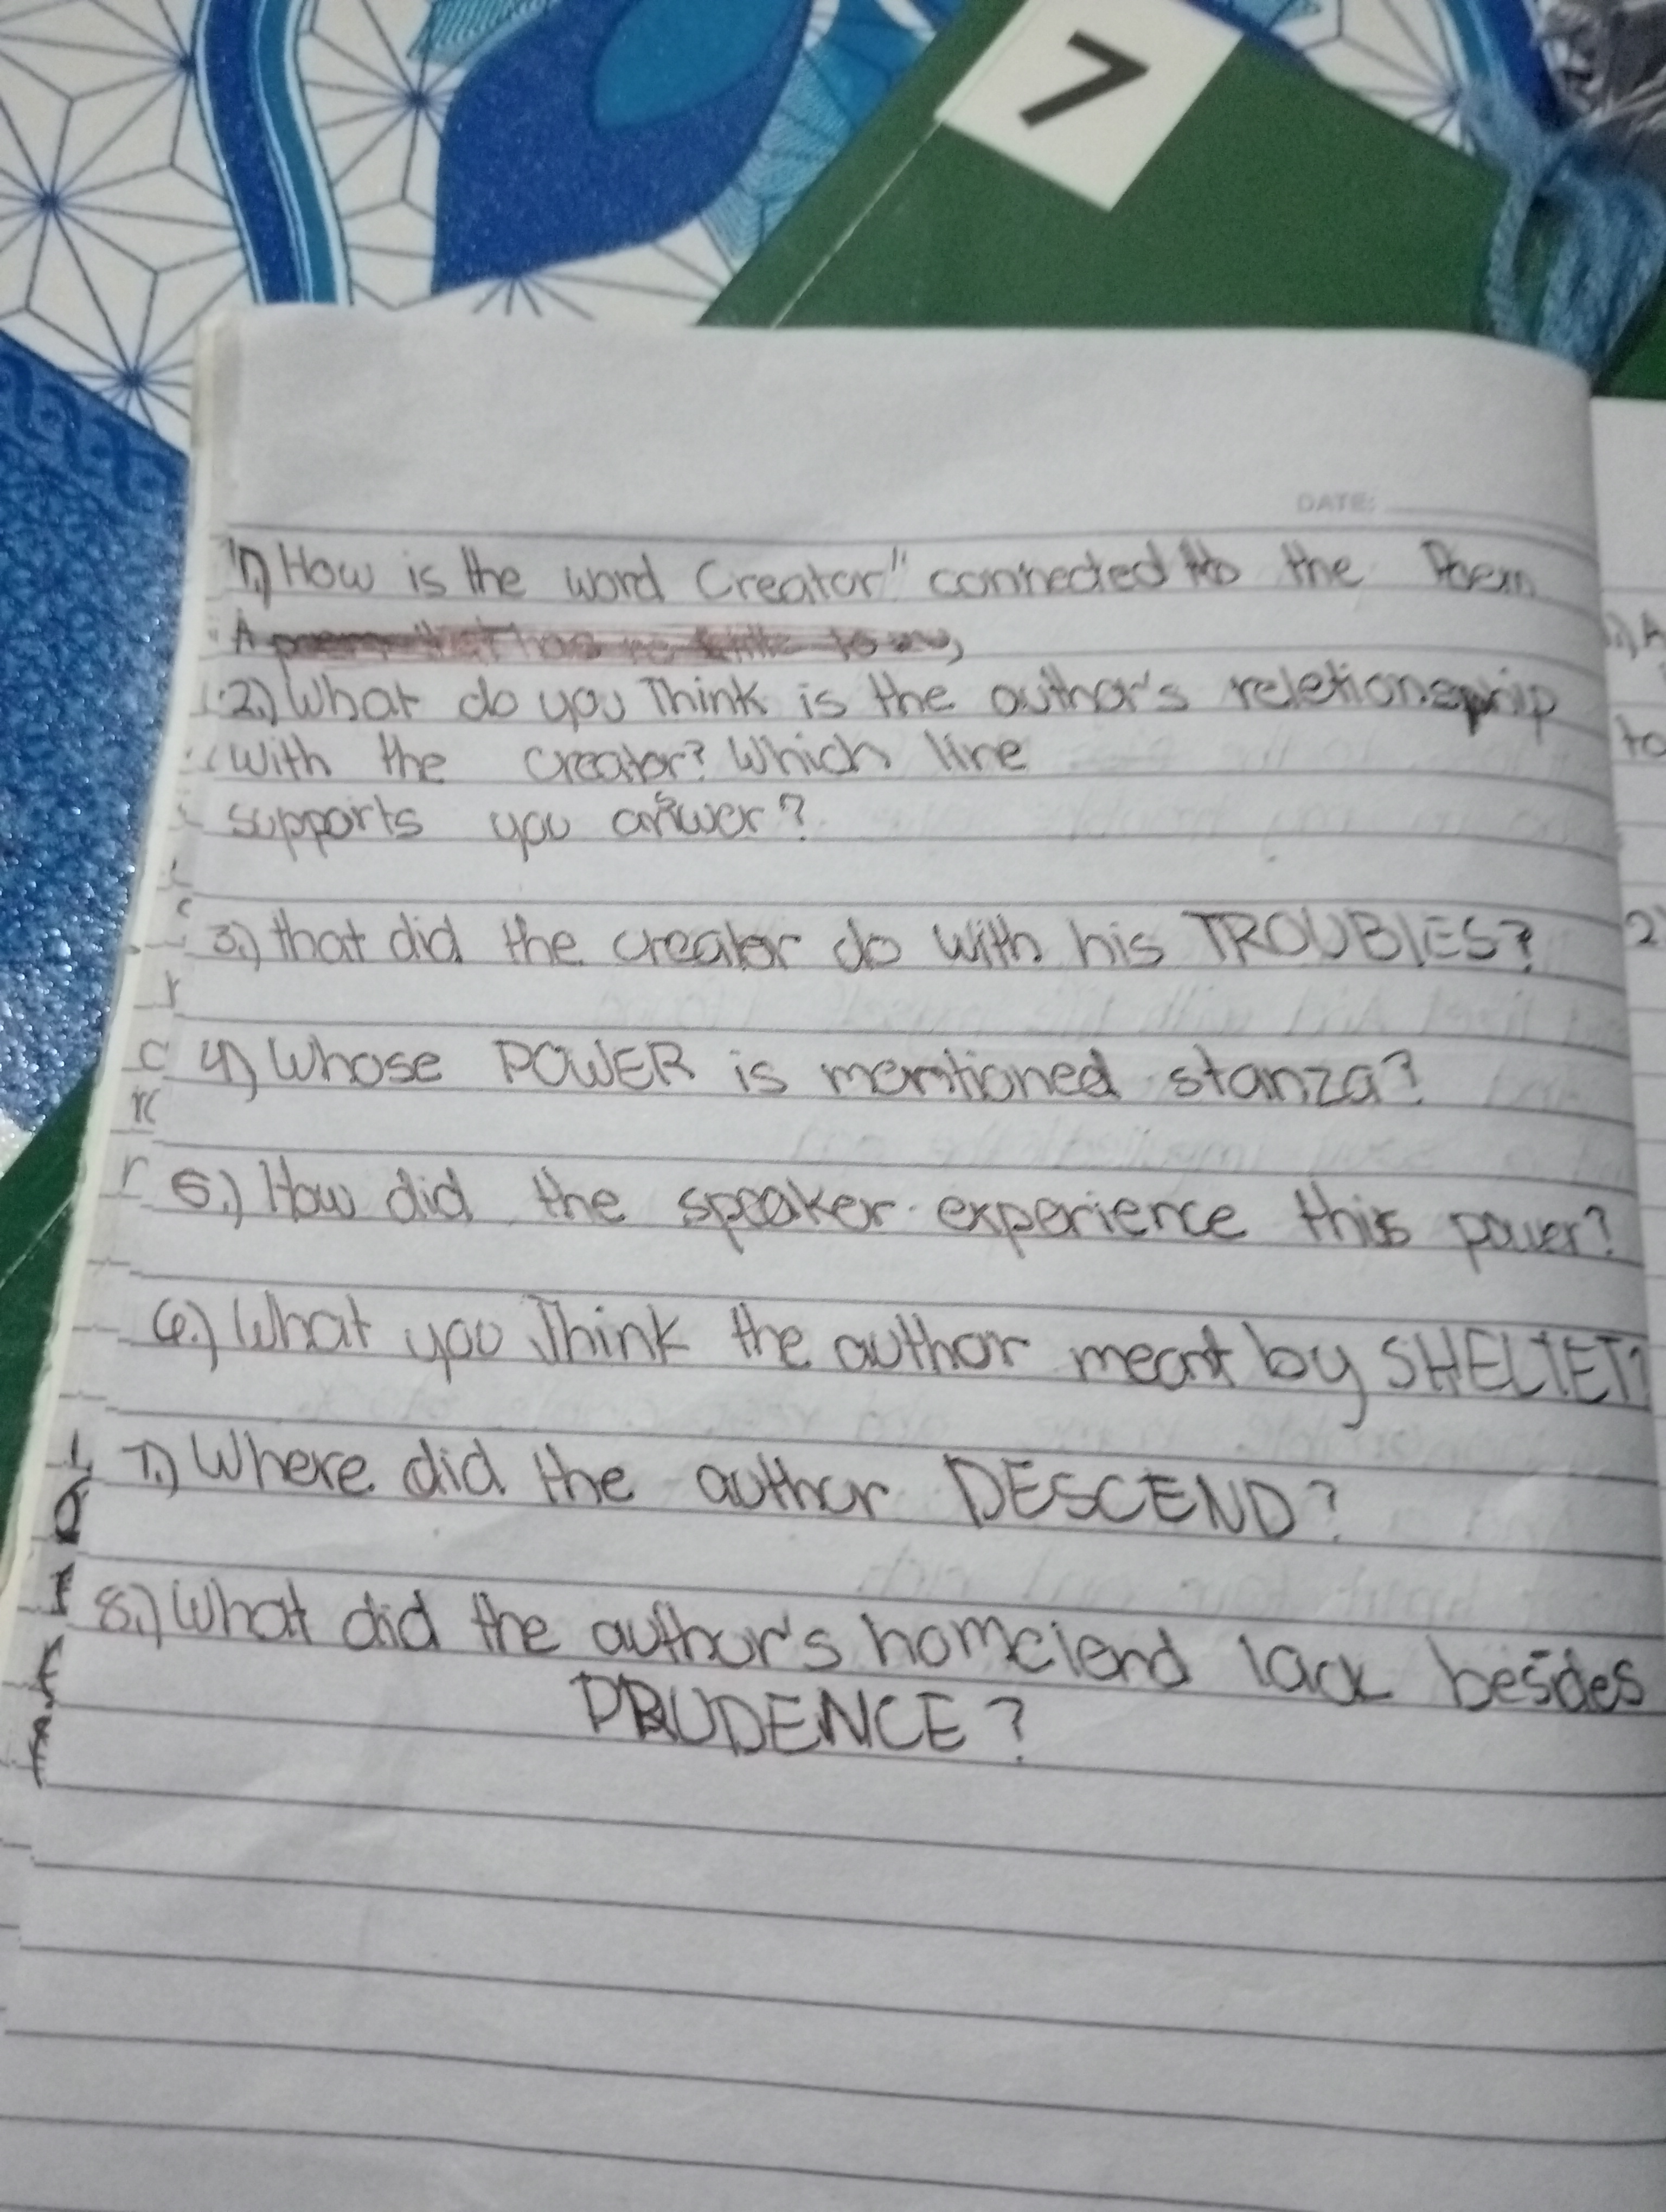 7
DATE:
1.) How is the word Creator" connected to the Poem
A
2.) What do you Think is the author's reletionship
with the creator? Which line
supports you answer?
3.) that did the creator do with his TROUBLES?
4.) Whose POWER is mentioned stanza?
5.) How did the speaker experience this power?
6.) What you Think the author meant by SHELTET?
7.) Where did the author DESCEND?
8.) What did the author's homeland lack besides
PRUDENCE?
2)
to